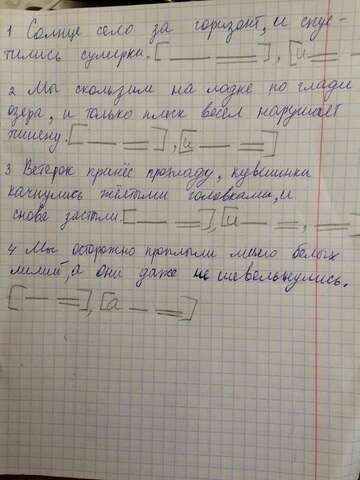 1 Солнце село за горизонт, и спус-
тились сумерки. [— =], [и —
2 Мы скользим на лодке по глади
озера, и только плеск вёсел нарушает
тишину. [— =], [и — =]
3 Ветерок принёс прохладу, кувшинки
качнулись жёлтыми головками, и
снова застыли. [— =], [и — , =
4 Мы осторожно проплыли мимо белых
лилий, а они даже не шевельнулись.
[— =], [а — =]